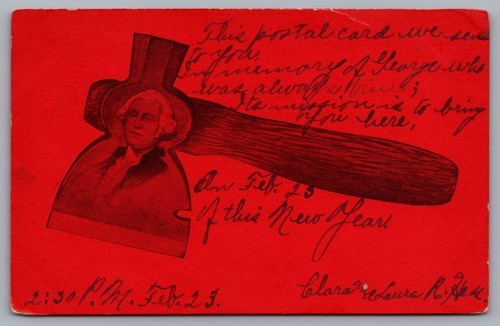 This postal card we send
to you,
In memory of George who
was always true;
Its mission is to bring
you here,
On Feb. 23
Of this New Year.
2:30 P.M. Feb. 23.
Clara & Laura R.